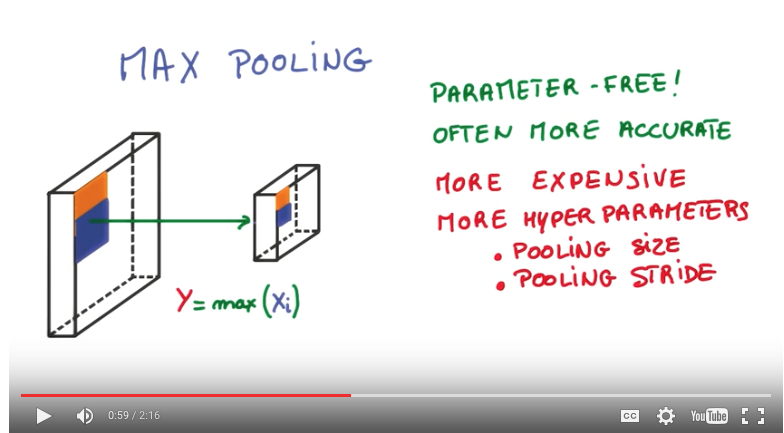 MAX POOLING
PARAMETER-FREE!
OFTEN MORE ACCURATE
MORE EXPENSIVE
MORE HYPERPARAMETERS
• POOLING SIZE
• POOLING STRIDE
Y = max(Xi)
0:59 / 2:16
CC
YouTube